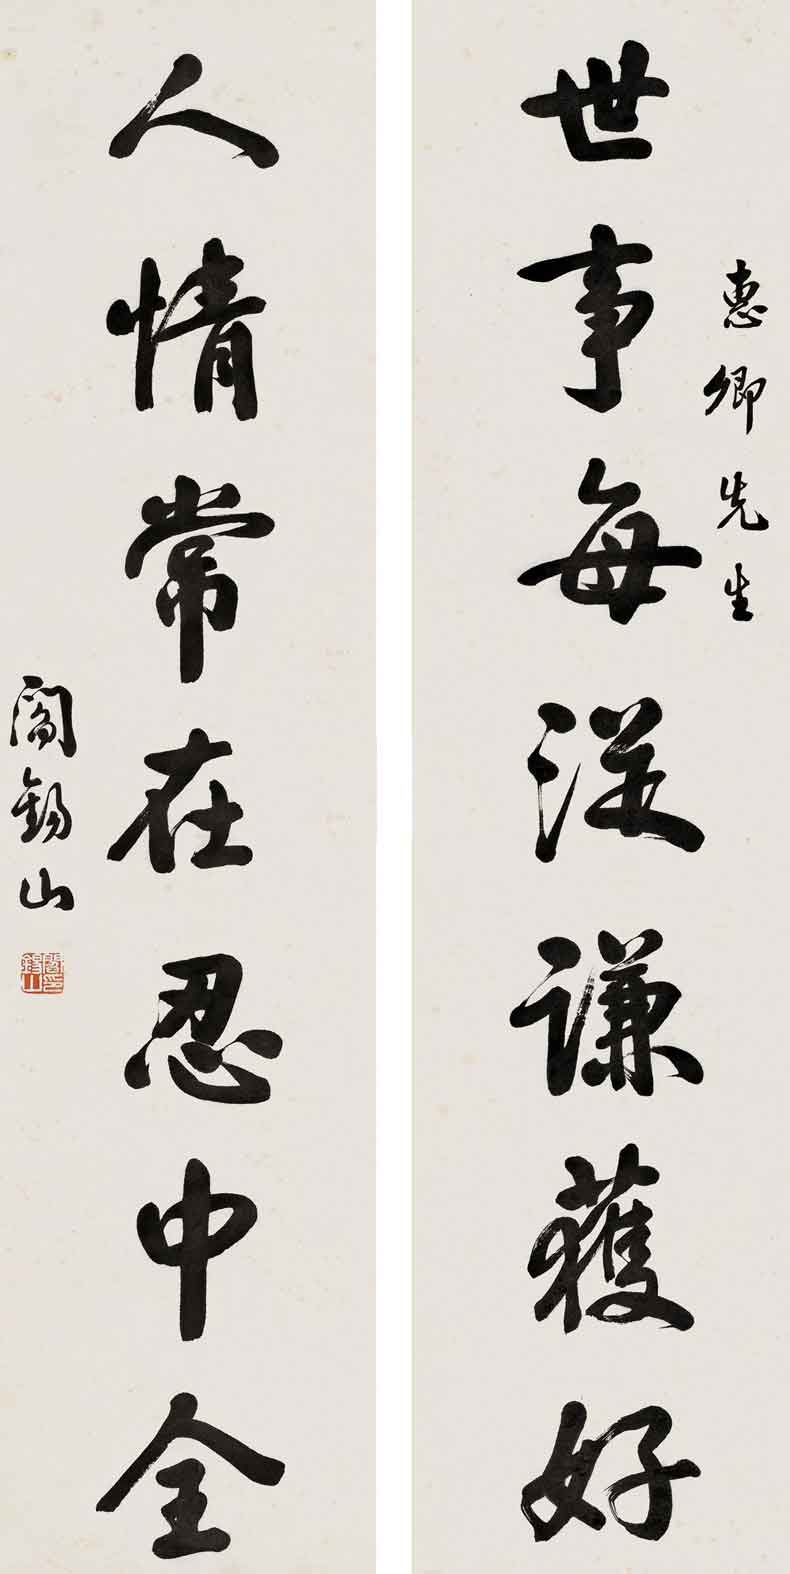 惠卿先生
世事每從謙獲好
人情常在忍中全
閻錫山
閻錫山印